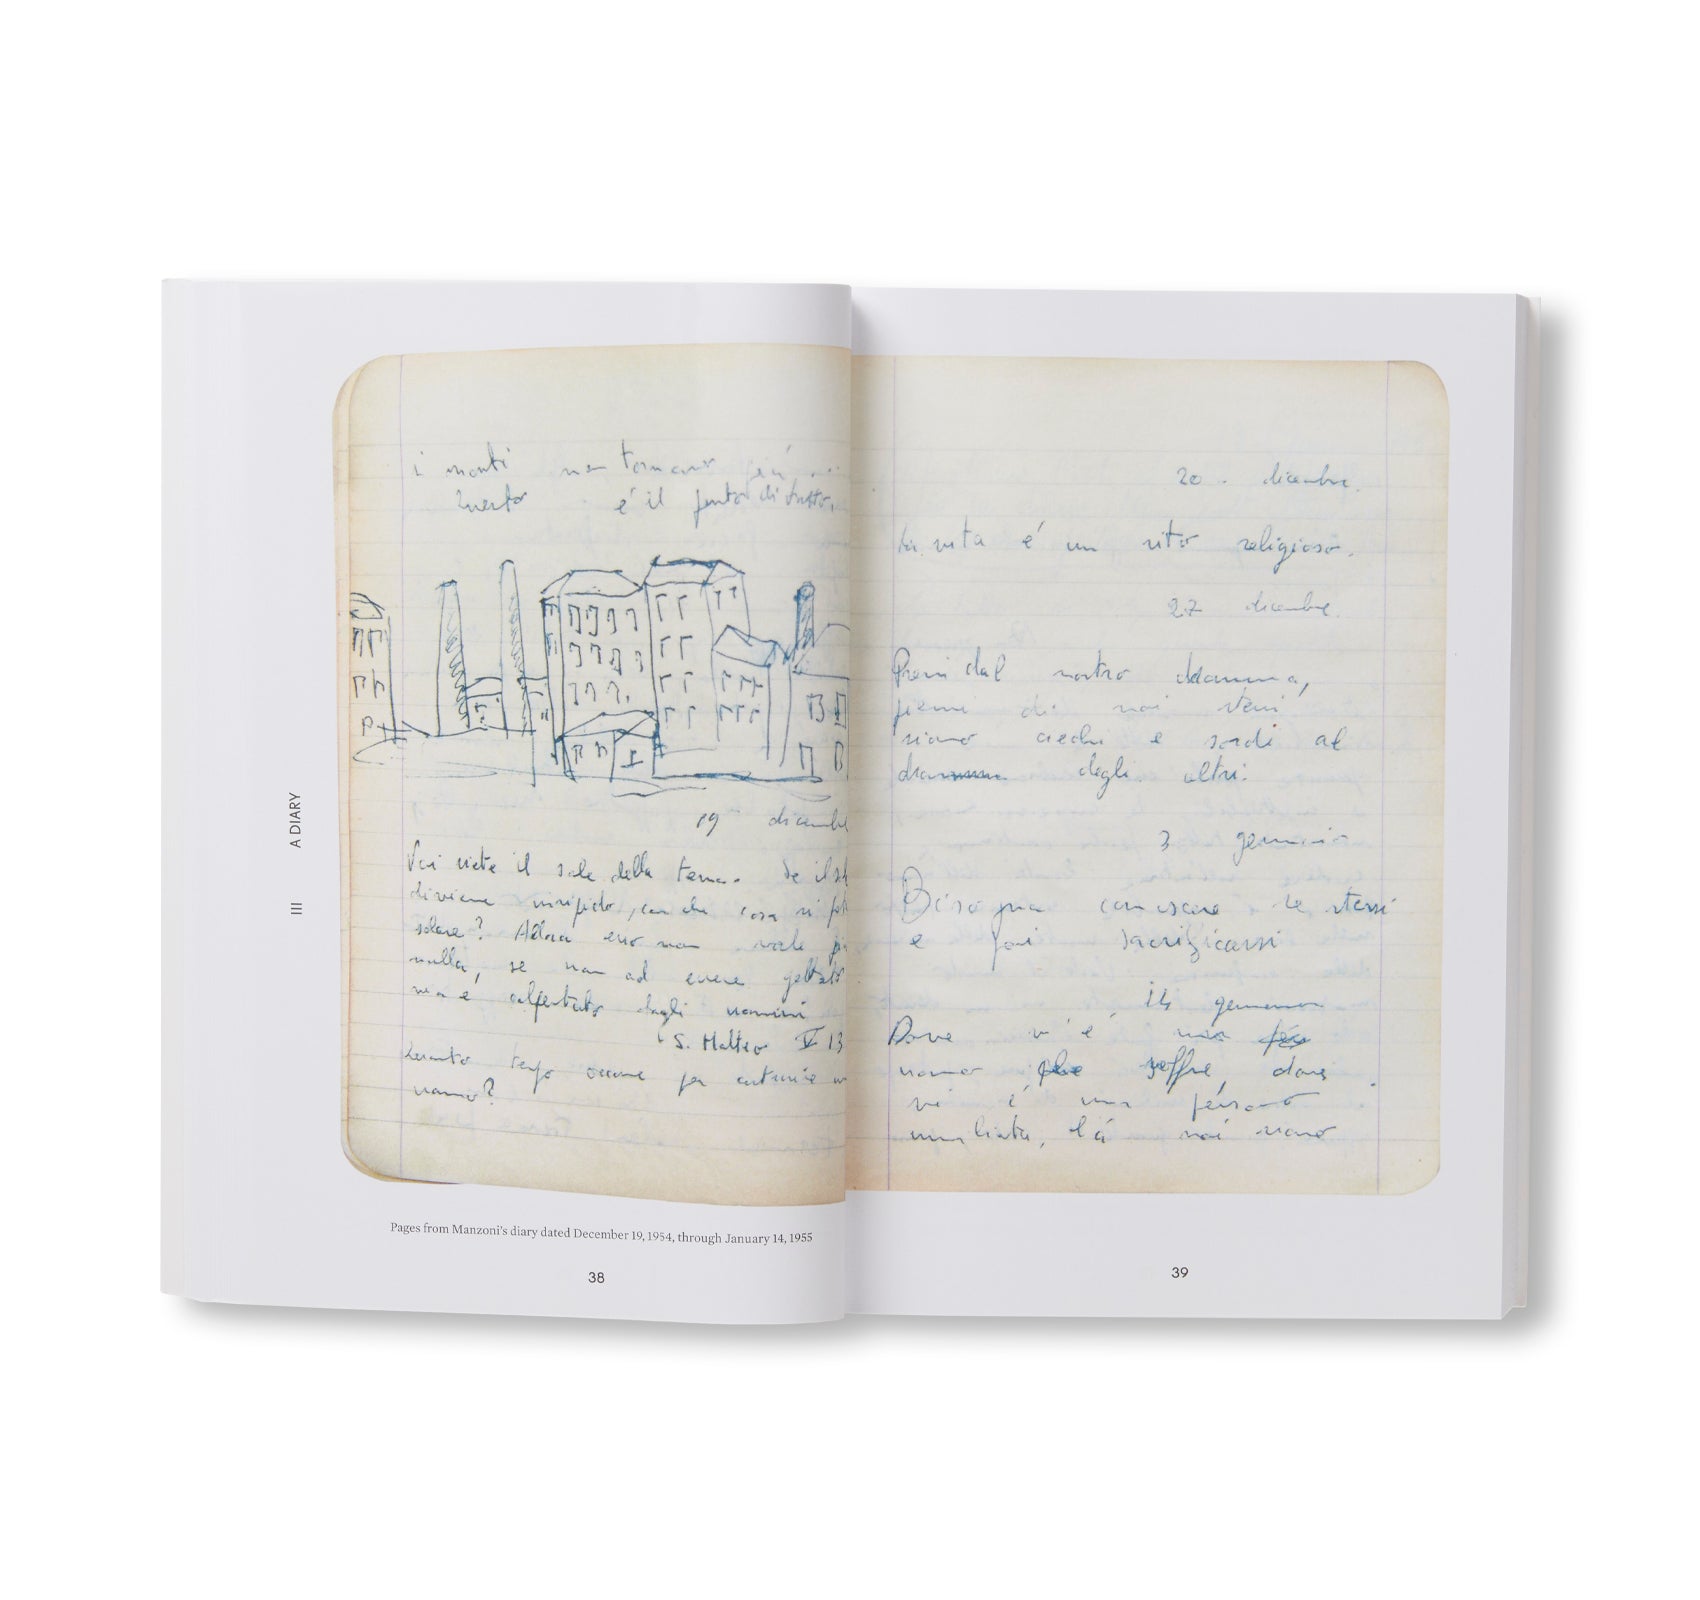 i monti non tornano più
Questo è il punto di tutto.
19 dicembre
Voi siete il sale della terra. Se il sale
diviene insipido, con che cosa si potrà
salare? Allora esso non vale più
nulla, se non ad essere gettato
via e calpestato dagli uomini
S. Matteo V 13
Quanto tempo occorre per costruire un
uomo?
III A DIARY
Pages from Manzoni's diary dated December 19, 1954, through January 14, 1955
38
20 dicembre.
La vita é un rito religioso.
27 dicembre.
Presi dal nostro dramma,
pieni di noi stessi
siamo ciechi e sordi al
dramma degli altri.
3 gennaio
Bisogna conoscere se stessi
e poi sacrificarsi
14 gennaio
Dove v'é un
uomo che soffre, dove
vi é una persona
umiliata, lá noi siamo
39